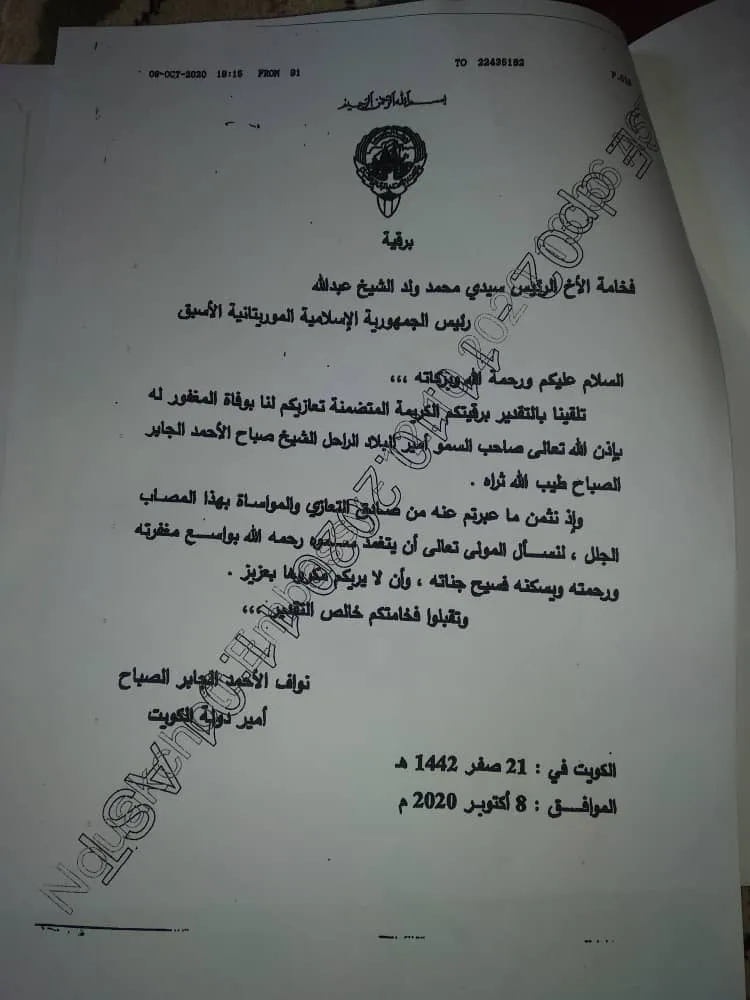 09-OCT-2020 19:15 FROM 91 TO 22435192
بسم الله الرحمن الرحيم
برقية
فخامة الأخ الرئيس سيدي محمد ولد الشيخ عبدالله
رئيس الجمهورية الإسلامية الموريتانية الأسبق
السلام عليكم ورحمة الله وبركاته ،،،
تلقينا بالتقدير برقيتكم الكريمة المتضمنة تعازيكم لنا بوفاة المغفور له
بإذن الله تعالى صاحب السمو أمير البلاد الراحل الشيخ صباح الأحمد الجابر
الصباح طيب الله ثراه .
وإذ نثمن ما عبرتم عنه من صادق التعازي والمواساة بهذا المصاب
الجلل ، لنسأل المولى تعالى أن يتغمد سموه رحمه الله بواسع مغفرته
ورحمته ويسكنه فسيح جناته ، وأن لا يريكم مكروها بعزيز .
وتقبلوا فخامتكم خالص التقدير ،،،
نواف الأحمد الجابر الصباح
أمير دولة الكويت
الكويت في : 21 صفر 1442 هـ
الموافق : 8 أكتوبر 2020 م